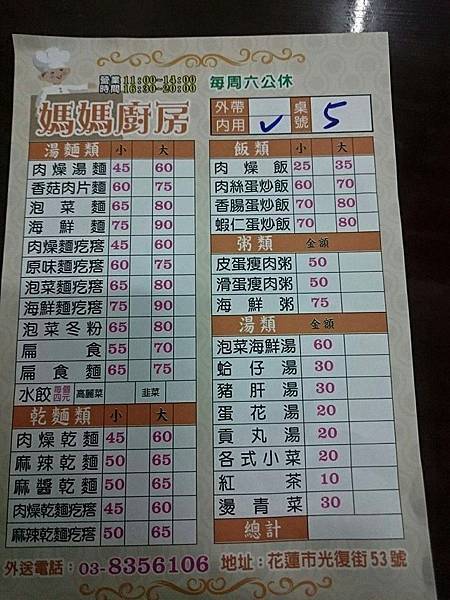 營業 11:00-14:00
時間 16:30-20:00
每周六公休
媽媽廚房
外帶
內用 ✓
桌號 5
湯麵類 小 大
肉燥湯麵 45 60
香菇肉片麵 60 75
泡菜麵 65 80
海鮮麵 75 90
肉燥麵疙瘩 45 60
原味麵疙瘩 60 75
泡菜麵疙瘩 65 80
海鮮麵疙瘩 75 90
泡菜冬粉 65 80
扁食 55 70
扁食麵 65 75
水餃 每個四元 高麗菜 韭菜
乾麵類 小 大
肉燥乾麵 45 60
麻辣乾麵 50 65
麻醬乾麵 50 65
肉燥乾麵疙瘩 45 60
麻辣乾麵疙瘩 50 65
飯類 小 大
肉燥飯 25 35
肉絲蛋炒飯 60 70
香腸蛋炒飯 70 80
蝦仁蛋炒飯 70 80
粥類 金額
皮蛋瘦肉粥 50
滑蛋瘦肉粥 50
海鮮粥 75
湯類 金額
泡菜海鮮湯 60
蛤仔湯 30
豬肝湯 30
蛋花湯 20
貢丸湯 20
各式小菜 20
紅茶 10
燙青菜 30
總計
外送電話：03-8356106 地址：花蓮市光復街53號